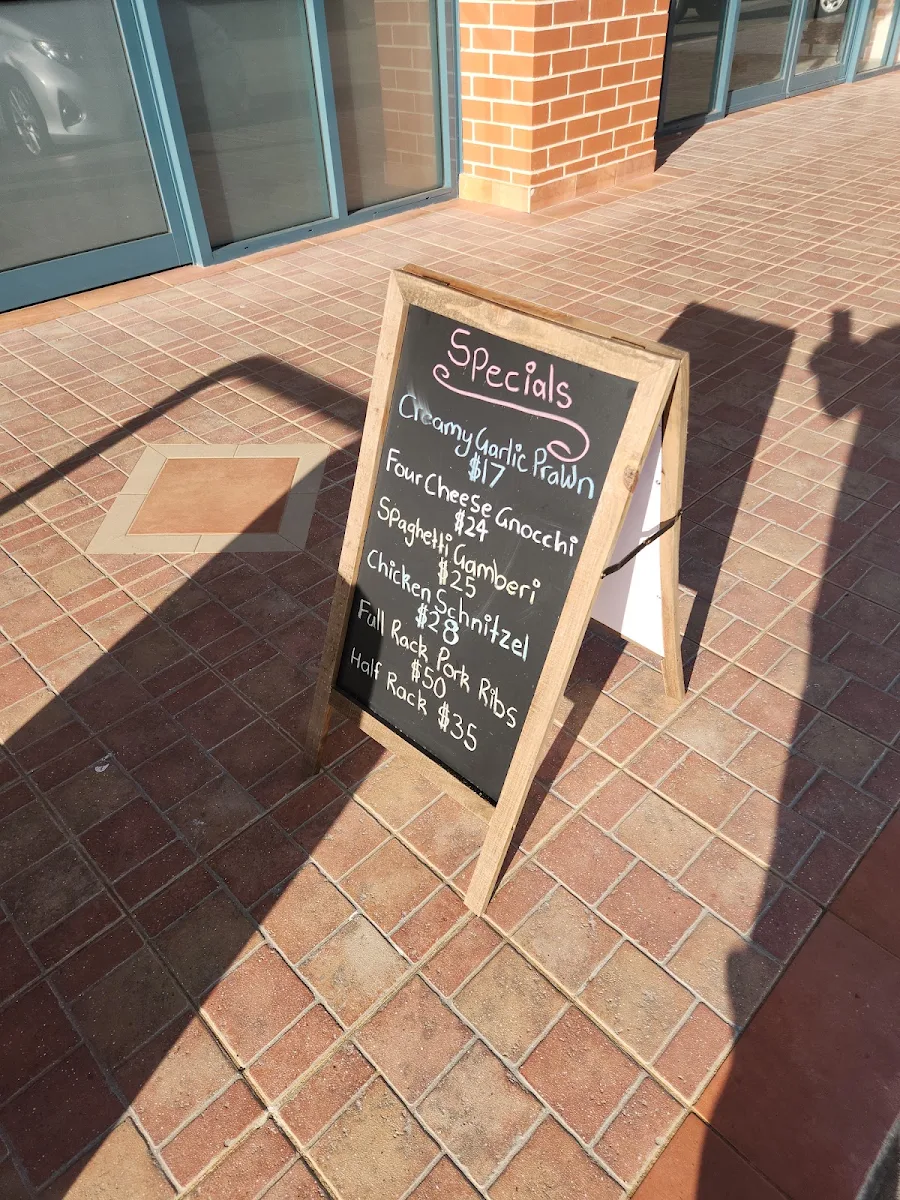 Specials
Creamy Garlic Prawn
$17
Four Cheese Gnocchi
$24
Spaghetti Gamberi
$25
Chicken Schnitzel
$28
Full Rack Pork Ribs
$50
Half Rack $35